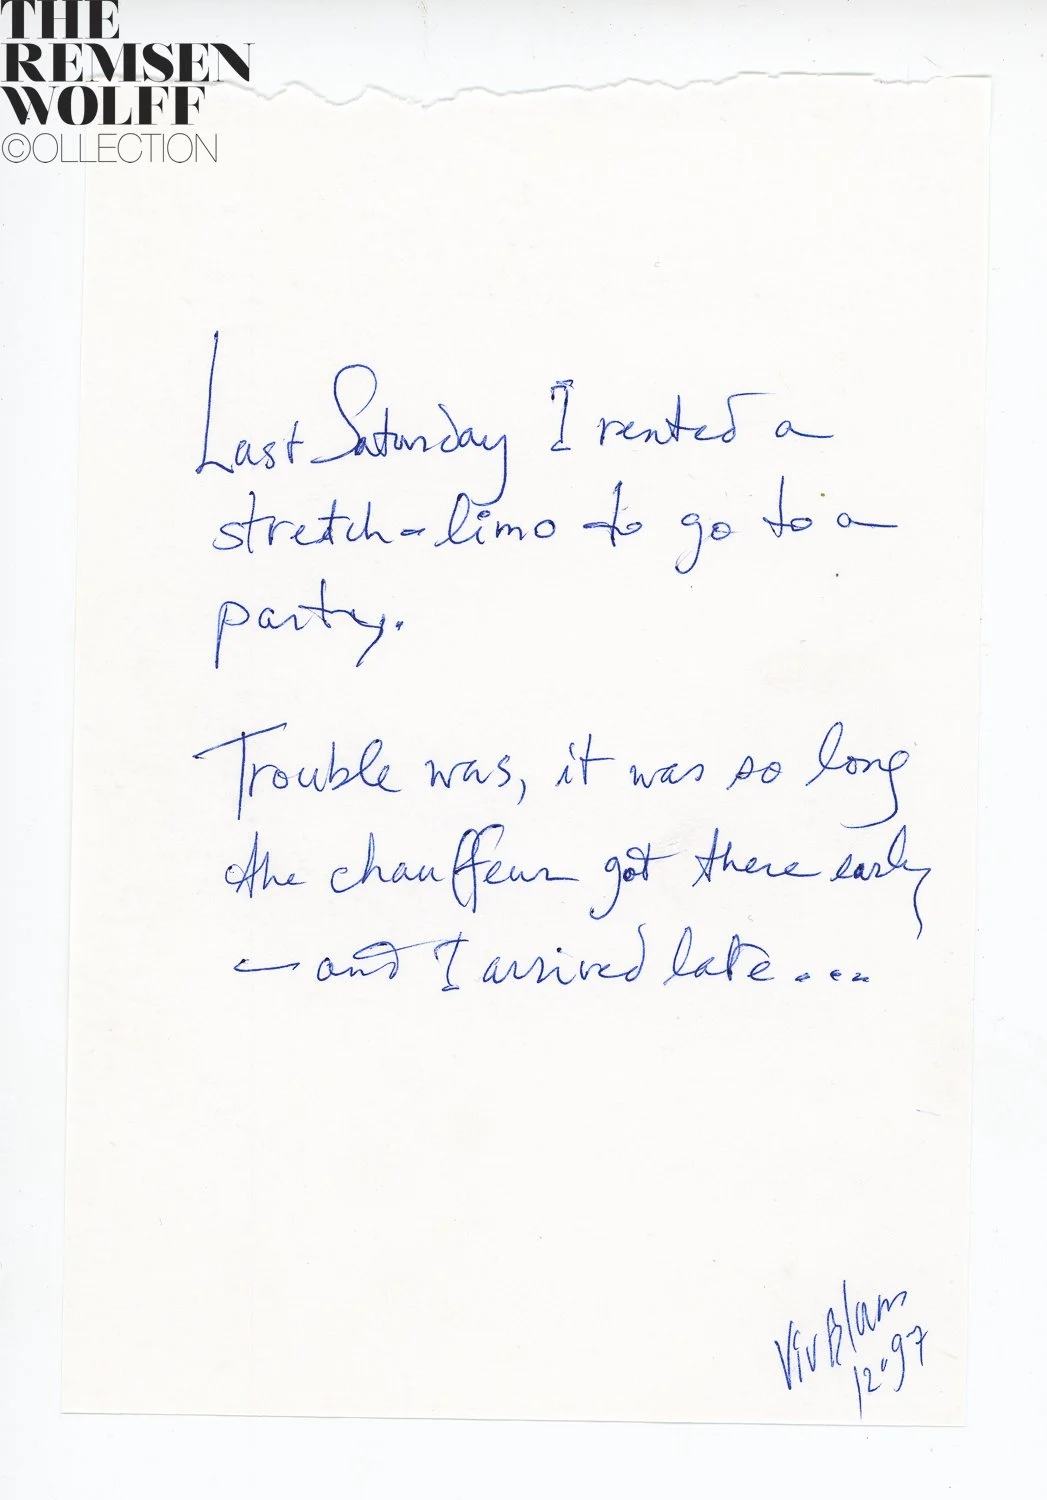 THE
REMSEN
WOLFF
©OLLECTION
Last Saturday I rented a
stretch-limo to go to a
party.
Trouble was, it was so long
the chauffeur got there early
— and I arrived late...
Viv Blam
12·97